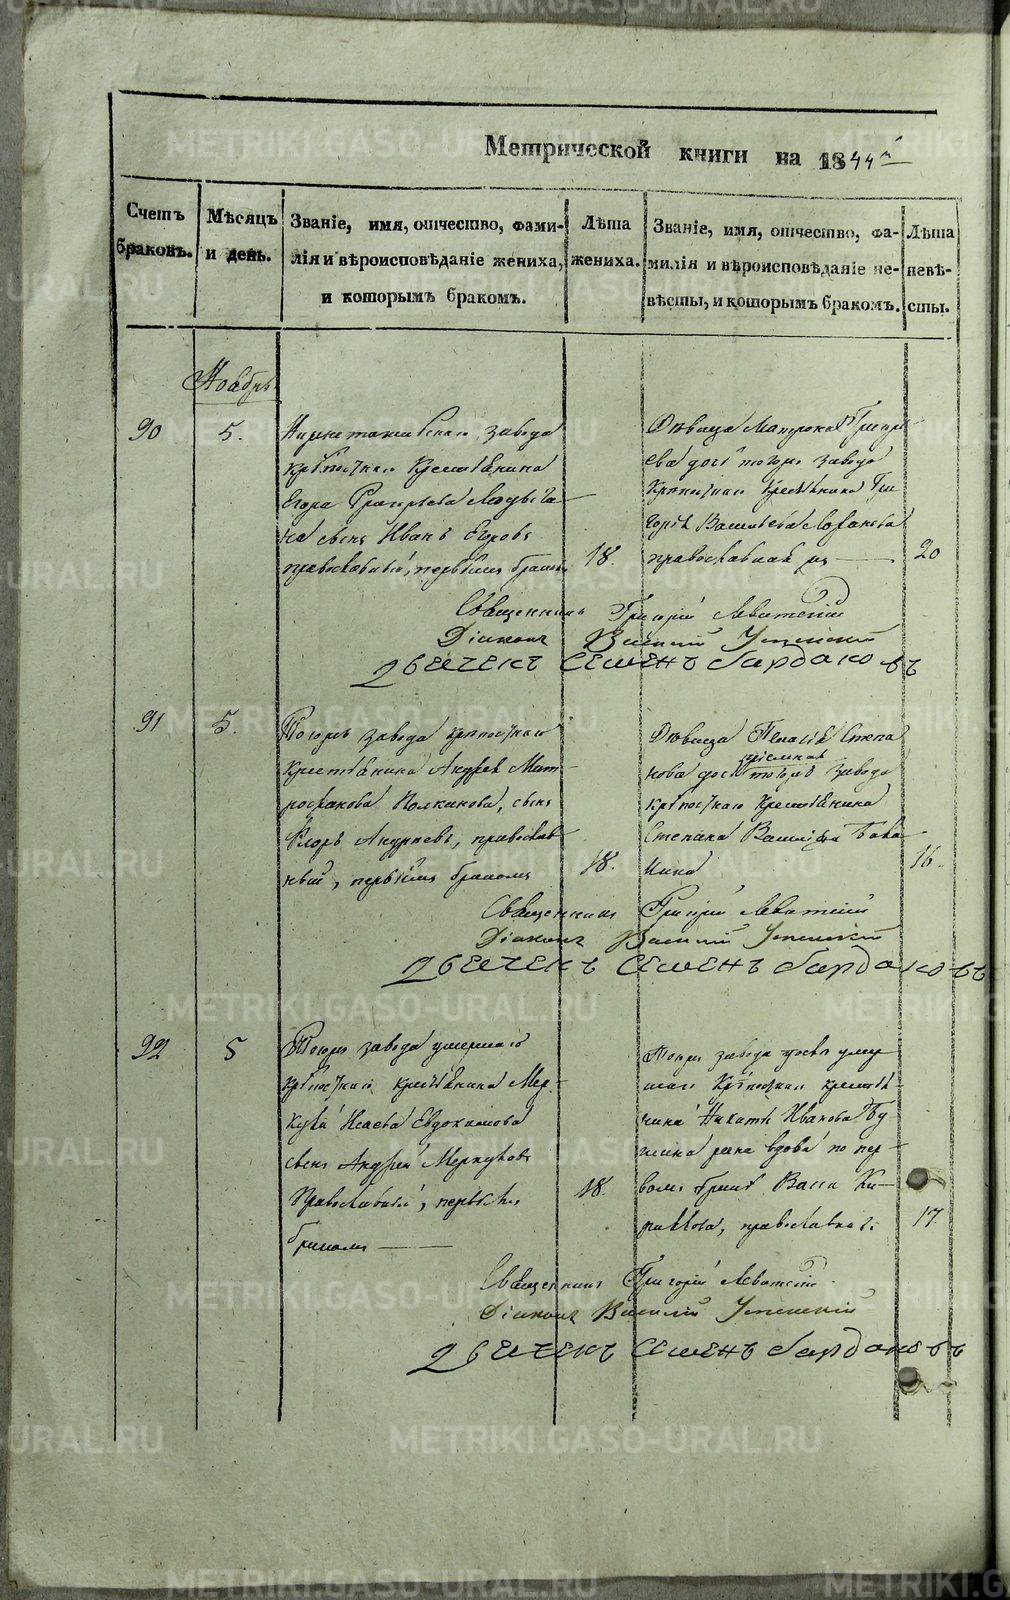 Метрической книги на 1844й
Счетъ браковъ.
Мѣсяцъ и день.
Званіе, имя, отчество, фами-
лія и вѣроисповѣданіе жениха,
и которымъ бракомъ.
Лѣта
жениха.
Званіе, имя, отчество, фа-
милія и вѣроисповѣданіе не-
вѣсты, и которымъ бракомъ.
Лѣта
невѣ-
сты.
Ноябрь
90
5.
завода
крѣпостнаго крестьянина
Егора Григорьева
на сынъ Иванъ Егоровъ
православный, первымъ бракомъ
18.
Дѣвица Григорь
ева дочь тогожъ завода
крѣпостнаго крестьянина Гри
горія Васильева
православная
20
Священникъ Григорій Левитскій
Діаконъ Василій Успенскій
Семенъ
91
5.
Тогожъ завода крѣпостнаго
крестьянина Андрея Мит
рофанова сынъ
Флоръ Андреевъ, православ
ный, первымъ бракомъ
18.
Дѣвица Пелагія Степа
нова тогожъ завода
крѣпостнаго крестьянина
Степана Васильева Бака
нина
16.
Священникъ Григорій Левитскій
Діаконъ Василій Успенскій
Семенъ
92
5
Тогожъ завода умершаго
крѣпостнаго крестьянина Мер
курія Исаева Евдокимова
сынъ Андрей Меркурьевъ
Православный, первымъ
бракомъ
18.
Тогожъ завода умер
шаго крѣпостнаго крестья
нина Никиты Иванова
вдова по пер
вомъ бракѣ Васса Ки
рилова, православная
17
Священникъ Григорій Левитскій
Діаконъ Василій Успенскій
Семенъ
METRIKI.GASO-URAL.RU